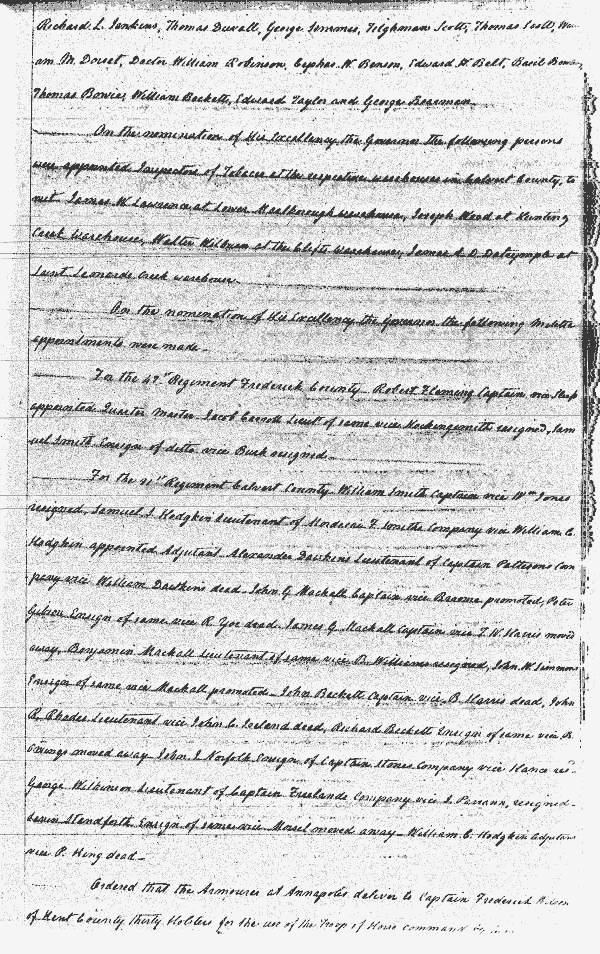 Richard L. Jenkins, Thomas Duvall, George Semmes, Tilghman Scott, Thomas Scott,
am M. Dorset, Doctor William Robinson, Cephas W. Benson, Edward W. Belt, Basil
Thomas Bowie, William Beckett, Edward Taylor and George Bearman
On the nomination of His Excellency the Governor the following persons
were appointed Inspectors of Tobacco at the respective warehouses in Calvert County, to
wit. James W. Lawrence at Lower Marlborough warehouse, Joseph Wood at Hunting
Creek Warehouse, Walter Wilburn at the Clifts Warehouse, James A. D. Dalrymple at
Saint Leonards Creek warehouse.
On the nomination of His Excellency the Governor the following Militia
appointments were made.
For the 47th Regiment Frederick County Robert Fleming Captain vice
appointed Quarter Master Jacob Lieut of same vice resigned, Sam
uel Smith Ensign of ditto vice Burk resigned.
For the 31st Regiment Calvert County William Smith Captain vice Wm Jones
resigned, Samuel S. Hodgkin Lieutenant of Mordecai F. Smiths Company vice William C.
Hodgkin appointed Adjutant Alexander Dawkins Lieutenant of Captain Pattersons Com
pany vice William Dawkins dead. John G Mackall Captain vice Broome promoted, Peter
Gibson Ensign of same vice R. Yoe dead. James G. Mackall Captain vice T. W. Harris moved
away, Benjamin Mackall Lieutenant of same vice B. Williams resigned, John W. Simmons
Ensign of same vice Mackall promoted - John Beckett Captain vice B. Harris dead, John
R. Rhodes Lieutenant vice John C. Ireland dead, Richard Beckett Ensign of same vice B.
Owings moved away. John I Norfolk Ensign of Captain Stones Company vice Hance res-
George Wilkinson Lieutenant of Captain Freelands Company vice I. Parrann, resigned -
Levin Standforth Ensign of same vice Morsel moved away - William C. Hodgkin Adjutant
vice P. King dead -
Ordered that the Armourer at Annapolis deliver to Captain Frederick
of Kent County thirty Holsters for the use of the Troop of Horse command